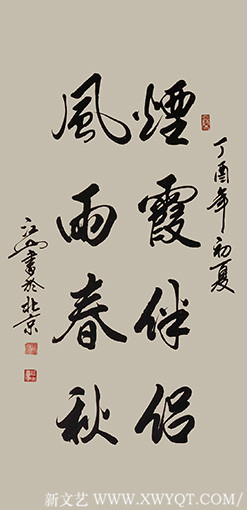 丁酉年初夏
煙霞伴侶
風雨春秋
江山書於北京
新文艺 WWW.XWYQT.COM